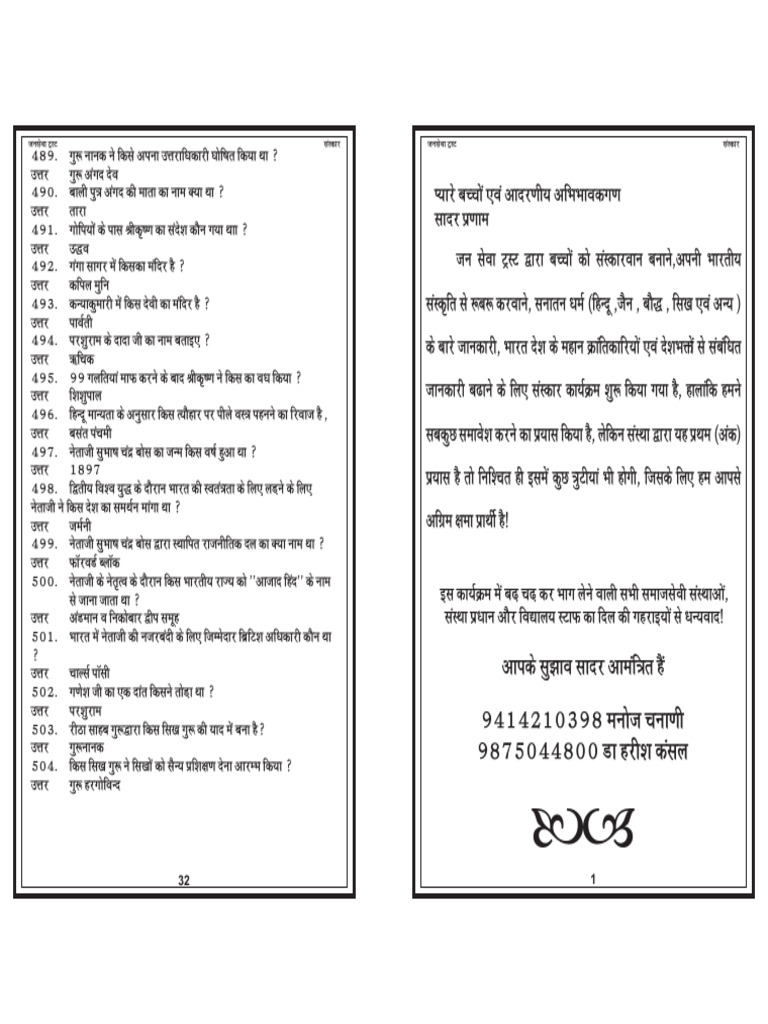 जनसेवा ट्रस्ट संस्कार
489. गुरू नानक ने किसे अपना उत्तराधिकारी घोषित किया था ?
उत्तर गुरू अंगद देव
490. बाली पुत्र अंगद की माता का नाम क्या था ?
उत्तर तारा
491. गोपियों के पास श्रीकृष्ण का संदेश कौन गया थाा ?
उत्तर उद्धव
492. गंगा सागर में किसका मंदिर है ?
उत्तर कपिल मुनि
493. कन्याकुमारी में किस देवी का मंदिर है ?
उत्तर पार्वती
494. परशुराम के दादा जी का नाम बताइए ?
उत्तर ऋचिक
495. 99 गलतियां माफ करने के बाद श्रीकृष्ण ने किस का वध किया ?
उत्तर शिशुपाल
496. हिन्दू मान्यता के अनुसार किस त्यौहार पर पीले वस्त्र पहनने का रिवाज है ,
उत्तर बसंत पंचमी
497. नेताजी सुभाष चंद्र बोस का जन्म किस वर्ष हुआ था ?
उत्तर 1897
498. द्वितीय विश्व युद्ध के दौरान भारत की स्वतंत्रता के लिए लड़ने के लिए
नेताजी ने किस देश का समर्थन मांगा था ?
उत्तर जर्मनी
499. नेताजी सुभाष चंद्र बोस द्वारा स्थापित राजनीतिक दल का क्या नाम था ?
उत्तर फॉरवर्ड ब्लॉक
500. नेताजी के नेतृत्व के दौरान किस भारतीय राज्य को ''आजाद हिंद'' के नाम
से जाना जाता था ?
उत्तर अंडमान व निकोबार द्वीप समूह
501. भारत में नेताजी की नजरबंदी के लिए जिम्मेदार ब्रिटिश अधिकारी कौन था
?
उत्तर चार्ल्स पॉसी
502. गणेश जी का एक दांत किसने तोडा था ?
उत्तर परशुराम
503. रीठा साहब गुरूद्वारा किस सिख गुरू की याद में बना है ?
उत्तर गुरूनानक
504. किस सिख गुरू ने सिखों को सैन्य प्रशिक्षण देना आरम्भ किया ?
उत्तर गुरू हरगोविन्द
32
जनसेवा ट्रस्ट संस्कार
प्यारे बच्चों एवं आदरणीय अभिभावकगण
सादर प्रणाम
जन सेवा ट्रस्ट द्वारा बच्चों को संस्कारवान बनाने,अपनी भारतीय
संस्कृति से रूबरू करवाने, सनातन धर्म (हिन्दू ,जैन , बौद्ध , सिख एवं अन्य )
के बारे जानकारी, भारत देश के महान क्रांतिकारियों एवं देशभक्तों से संबंधित
जानकारी बढाने के लिए संस्कार कार्यक्रम शुरू किया गया है, हालांकि हमने
सबकुछ समावेश करने का प्रयास किया है, लेकिन संस्था द्वारा यह प्रथम (अंक)
प्रयास है तो निश्चित ही इसमें कुछ त्रुटीयां भी होगी, जिसके लिए हम आपसे
अग्रिम क्षमा प्रार्थी है!
इस कार्यक्रम में बढ़ चढ़ कर भाग लेने वाली सभी समाजसेवी संस्थाओं,
संस्था प्रधान और विद्यालय स्टाफ का दिल की गहराइयों से धन्यवाद!
आपके सुझाव सादर आमंत्रित हैं
9414210398 मनोज चनाणी
9875044800 डा हरीश कंसल
1